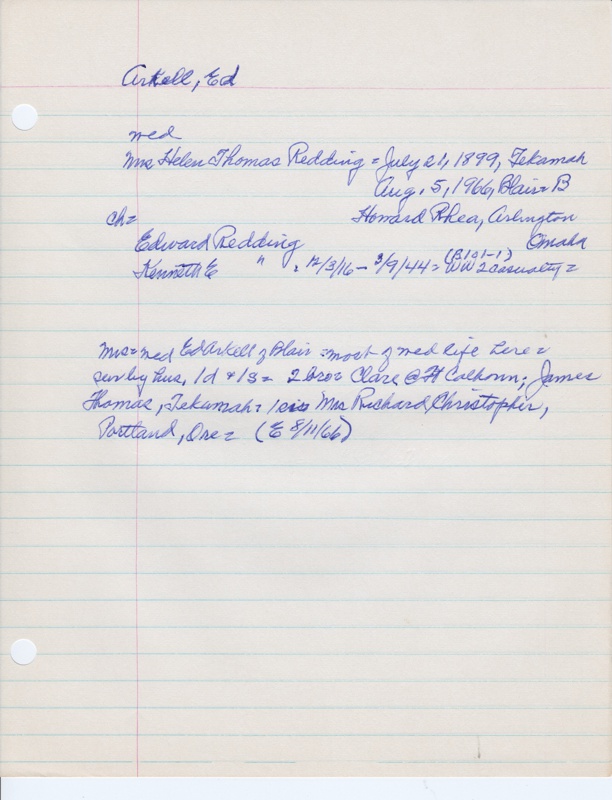 Arkell, Ed
med
Mrs Helen Thomas Redding = July 21, 1899, Tekamah
Aug. 5, 1966, Blair = B
ch = Howard Rhea, Arlington
Edward Redding Omaha
Kenneth E " , 12/3/16 - 3/9/44 = WW 2 casualty =
(B101-1)
Mrs = med Ed Arkell of Blair = most of med life here =
sur by hus, 1d + 1s = 2 bro = Clare @ Ft Calhoun; James
Thomas, Tekamah = 1 sis Mrs Richard Christopher,
Portland, Ore = (E 8/11/66)